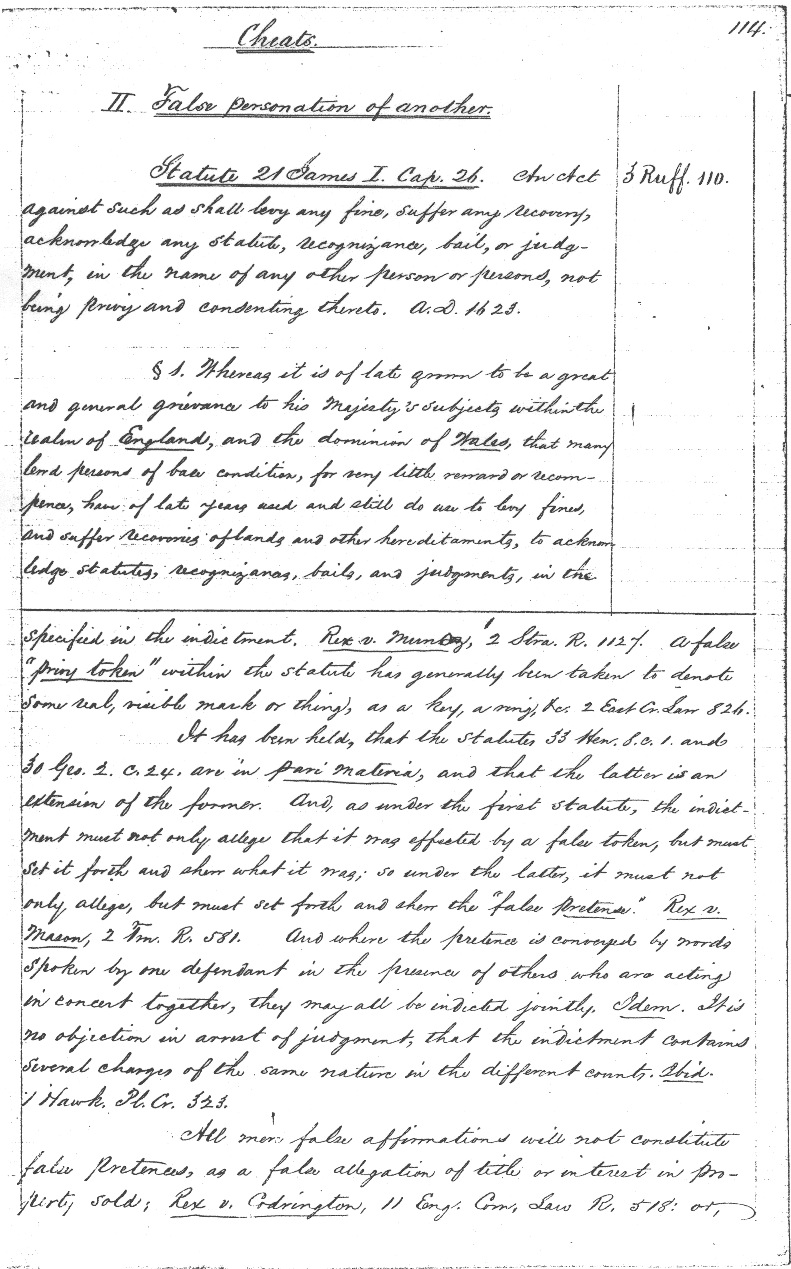 114.
Cheats.
II. False personation of another.
Statute 21 James I. Cap. 26. An Act
3 Ruff. 110.
against such as shall levy any fine, suffer any recovery,
acknowledge any statute, recognizance, bail, or judg-
ment, in the name of any other person or persons, not
being privy and consenting thereto. A.D. 1623.
§ 1. Whereas it is of late grown to be a great
and general grievance to his Majesty's subjects within the
realm of England, and the dominion of Wales, that many
lewd persons of base condition, for very little reward or recom-
pence, have of late years used and still do use to levy fines,
and suffer recoveries of lands and other hereditaments, to acknow
ledge statutes, recognizances, bails, and judgments, in the
specified in the indictment. Rex v. Munoz, 2 Stra. R. 1127. A false
"privy token" within the statute has generally been taken to denote
some real, visible mark or thing, as a key, a ring, &c. 2 East Cr. Law 826.
It has been held, that the statutes 33 Hen. 8. c. 1. and
30 Geo. 2. c. 24. are in pari materia, and that the latter is an
extension of the former. And, as under the first statute, the indict-
ment must not only allege that it was effected by a false token, but must
set it forth and shew what it was; so under the latter, it must not
only allege, but must set forth and shew the "false pretense." Rex v.
Mason, 2 Tm. R. 581. And where the pretence is conveyed by words
spoken by one defendant in the presence of others who are acting
in concert together, they may all be indicted jointly. Idem. It is
no objection in arrest of judgment, that the indictment contains
several charges of the same nature in the different counts. Ibid.
1 Hawk. Pl. Cr. 323.
All mere false affirmations will not constitute
false pretences, as a false allegation of title or interest in pro-
perty sold; Rex v. Codrington, 11 Eng. Com. Law R. 518: or,